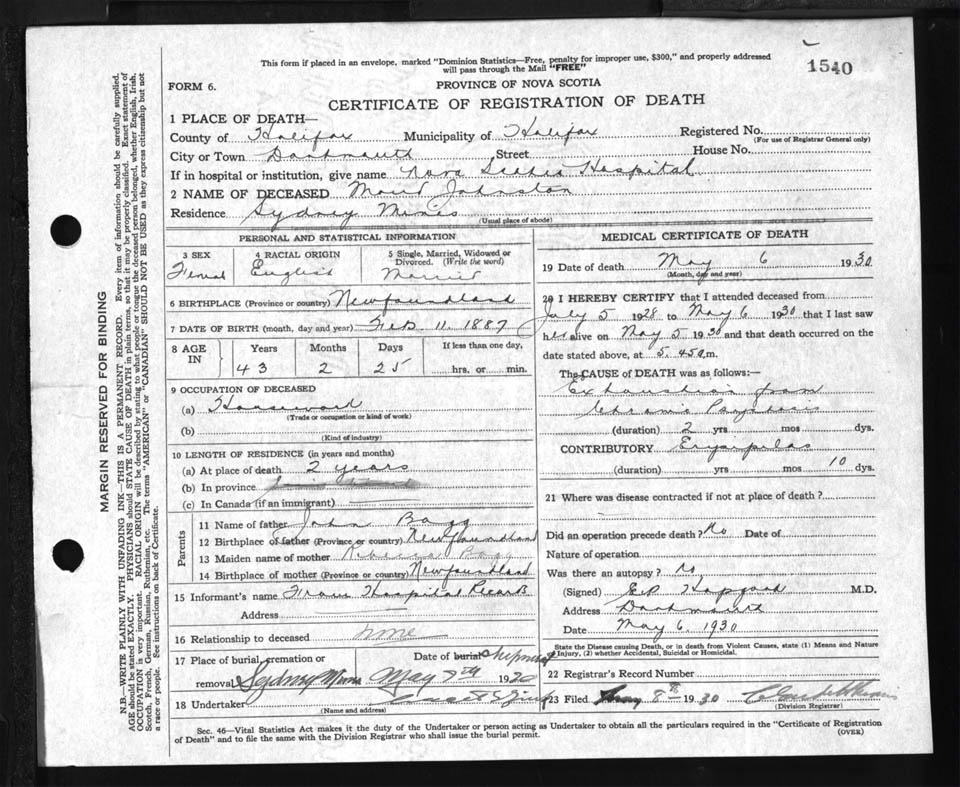 1540
This form if placed in an envelope, marked "Dominion Statistics—Free, penalty for improper use, $300," and properly addressed
will pass through the Mail "FREE"
FORM 6.
PROVINCE OF NOVA SCOTIA
CERTIFICATE OF REGISTRATION OF DEATH
1 PLACE OF DEATH—
County of Halifax Municipality of Halifax Registered No.
(For use of Registrar General only)
City or Town Dartmouth Street House No.
If in hospital or institution, give name Nova Scotia Hospital
2 NAME OF DECEASED Maud Johnston
Residence Sydney Mines
(Usual place of abode)
PERSONAL AND STATISTICAL INFORMATION
3 SEX 4 RACIAL ORIGIN 5 Single, Married, Widowed or
Divorced. (Write the word)
Femal English Married
6 BIRTHPLACE (Province or country) Newfoundland
7 DATE OF BIRTH (month, day and year) Feb 11. 1887
8 AGE IN Years Months Days If less than one day,
43 2 25 hrs. or min.
9 OCCUPATION OF DECEASED
(a) Housework
(Trade or occupation or kind of work)
(b)
(Kind of industry)
10 LENGTH OF RESIDENCE (in years and months)
(a) At place of death 2 years
(b) In province
(c) In Canada (if an immigrant)
Parents
11 Name of father John Bagg
12 Birthplace of father (Province or country) Newfoundland
13 Maiden name of mother Rebecca
14 Birthplace of mother (Province or country) Newfoundland
15 Informant's name From Hospital Records
Address
16 Relationship to deceased none
17 Place of burial, cremation or Date of burial shipment
removal Sydney Mines May 7th 1930
18 Undertaker
(Name and address)
MEDICAL CERTIFICATE OF DEATH
19 Date of death May 6 1930
(Month, day and year)
20 I HEREBY CERTIFY that I attended deceased from
July 5 1928 to May 6 1930 that I last saw
her alive on May 5 1930 and that death occurred on the
date stated above, at 5.45 a.m.
The CAUSE OF DEATH was as follows:—
Exhaustion from
Chronic Psychosis
(duration) 2 yrs mos dys.
CONTRIBUTORY Erysipelas
(duration) yrs mos 10 dys.
21 Where was disease contracted if not at place of death?
Did an operation precede death? No Date of
Nature of operation
Was there an autopsy? no
(Signed) M.D.
Address Dartmouth
Date May 6, 1930
State the Disease causing Death, or in death from Violent Causes, state (1) Means and Nature
of Injury, (2) whether Accidental, Suicidal or Homicidal.
22 Registrar's Record Number
23 Filed May 8th 1930
(Division Registrar)
Sec. 46—Vital Statistics Act makes it the duty of the Undertaker or person acting as Undertaker to obtain all the particulars required in the "Certificate of Registration
of Death" and to file the same with the Division Registrar who shall issue the burial permit.
(OVER)
MARGIN RESERVED FOR BINDING
N.B.—WRITE PLAINLY WITH UNFADING INK—THIS IS A PERMANENT RECORD. Every item of information should be carefully supplied.
AGE should be stated EXACTLY. PHYSICIANS should STATE CAUSE OF DEATH in plain terms, so that it may be properly classified. Exact statement of
OCCUPATION is very important. RACIAL ORIGIN will be described by stating to what people or tongue the deceased person belonged, whether English, Irish,
Scotch, French, German, Russian, Ruthenian, etc. The terms "AMERICAN" or "CANADIAN" SHOULD NOT BE USED as they express citizenship but not
a race or people. See instructions on back of Certificate.